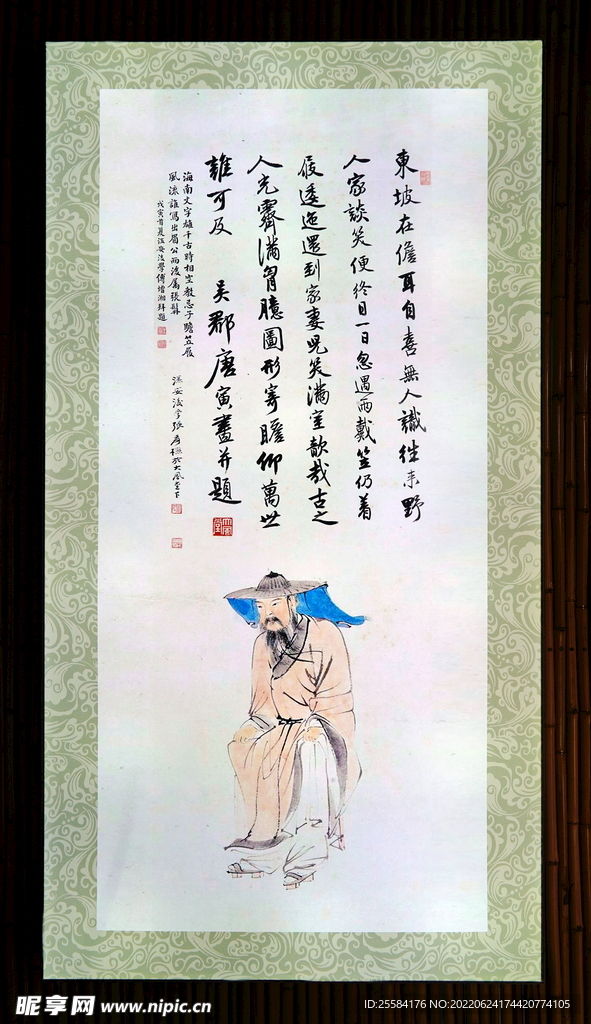 東坡在儋耳自喜無人識往來野
人家談笑便終日一日忽遇雨戴笠仍着
屐逶迤還到家妻兒笑滿室歆哉古之
人光霽滿胷臆圖形寄瞻仰萬世
誰可及 吳郡唐寅畫并題
海南文字雄千古時相空教忌子瞻笠屐
風流誰寫出眉公而後屬張髯
戊寅首夏江安後學傅增湘拜題
安後學張爰橅於大風堂下
昵享网 www.nipic.cn
ID:25584176 NO:20220624174420774105